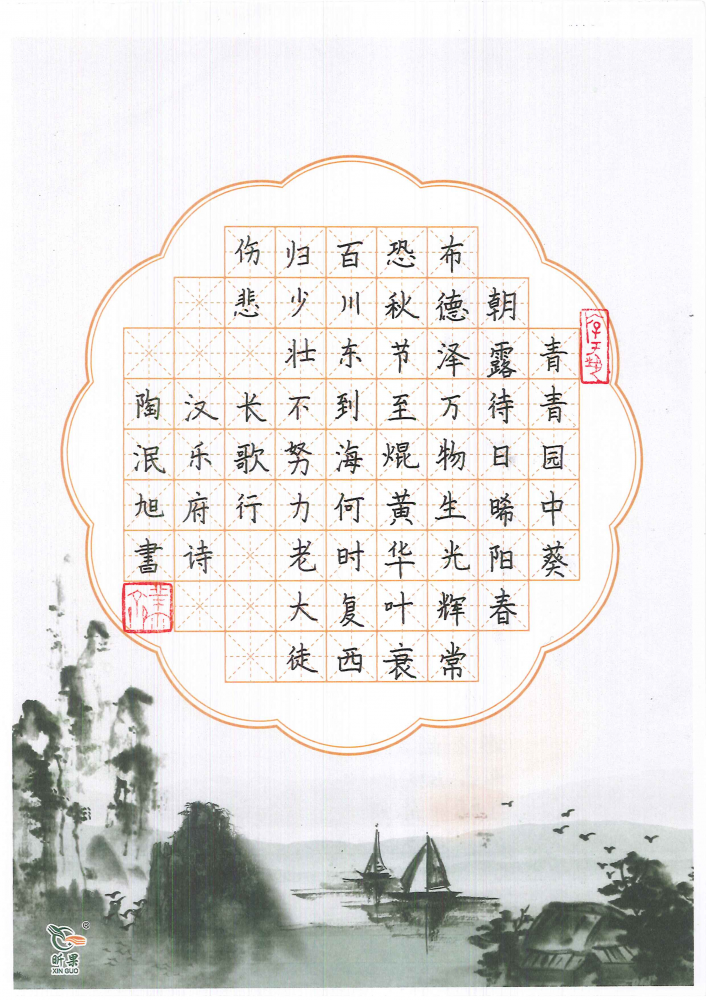 青青园中葵
朝露待日晞阳春
布德泽万物生光辉常
恐秋节至焜黄华叶衰
百川东到海何时复西
归少壮不努力老大徒
伤悲长歌行
汉乐府诗
陶泯旭書
昕果
XIN GUO